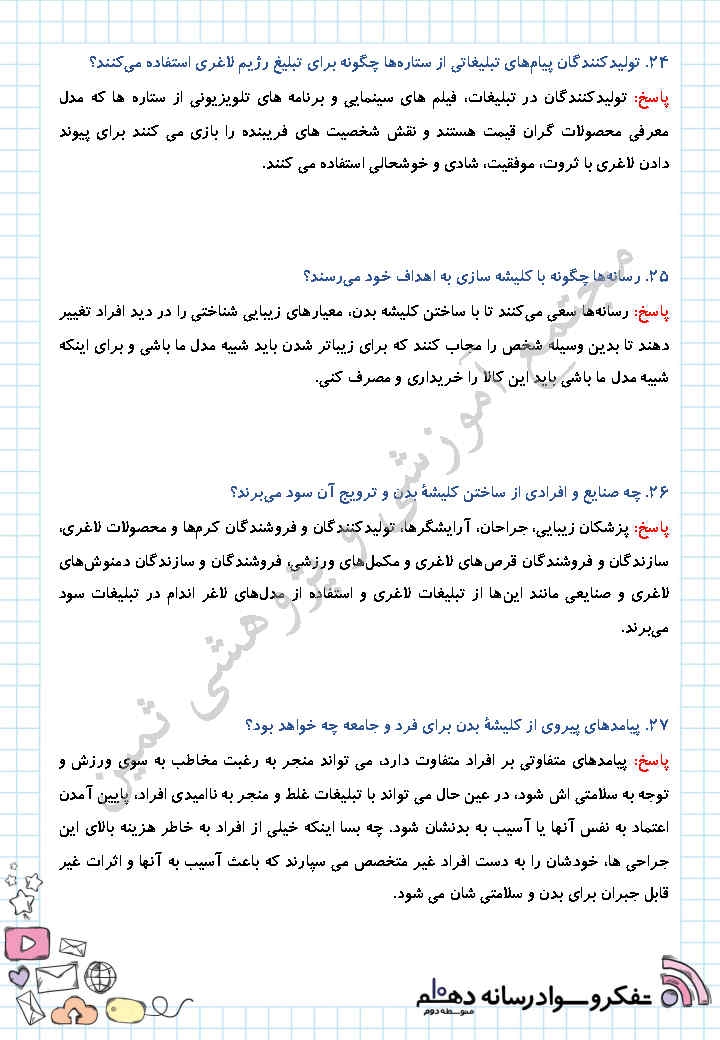 ۲۴. تولیدکنندگان پیام‌های تبلیغاتی از ستاره‌ها چگونه برای تبلیغ رژیم لاغری استفاده می‌کنند؟
پاسخ: تولیدکنندگان در تبلیغات، فیلم های سینمایی و برنامه های تلویزیونی از ستاره ها که مدل
معرفی محصولات گران قیمت هستند و نقش شخصیت های فریبنده را بازی می کنند برای پیوند
دادن لاغری با ثروت، موفقیت، شادی و خوشحالی استفاده می کنند.
۲۵. رسانه‌ها چگونه با کلیشه سازی به اهداف خود می‌رسند؟
پاسخ: رسانه‌ها سعی می‌کنند تا با ساختن کلیشه بدن، معیارهای زیبایی شناختی را در دید افراد تغییر
دهند تا بدین وسیله شخص را مجاب کنند که برای زیباتر شدن باید شبیه مدل ما باشی و برای اینکه
شبیه مدل ما باشی باید این کالا را خریداری و مصرف کنی.
۲۶. چه صنایع و افرادی از ساختن کلیشهٔ بدن و ترویج آن سود می‌برند؟
پاسخ: پزشکان زیبایی، جراحان، آرایشگرها، تولیدکنندگان و فروشندگان کرم‌ها و محصولات لاغری،
سازندگان و فروشندگان قرص‌های لاغری و مکمل‌های ورزشی، فروشندگان و سازندگان دمنوش‌های
لاغری و صنایعی مانند این‌ها از تبلیغات لاغری و استفاده از مدل‌های لاغر اندام در تبلیغات سود
می‌برند.
۲۷. پیامدهای پیروی از کلیشهٔ بدن برای فرد و جامعه چه خواهد بود؟
پاسخ: پیامدهای متفاوتی بر افراد متفاوت دارد، می تواند منجر به رغبت مخاطب به سوی ورزش و
توجه به سلامتی اش شود، در عین حال می تواند با تبلیغات غلط و منجر به ناامیدی افراد، پایین آمدن
اعتماد به نفس آنها یا آسیب به بدنشان شود. چه بسا اینکه خیلی از افراد به خاطر هزینه بالای این
جراحی ها، خودشان را به دست افراد غیر متخصص می سپارند که باعث آسیب به آنها و اثرات غیر
قابل جبران برای بدن و سلامتی شان می شود.
مجتمع آموزشی و پژوهشی ثمین
تفکر و سواد رسانه دهم
متوسطه دوم